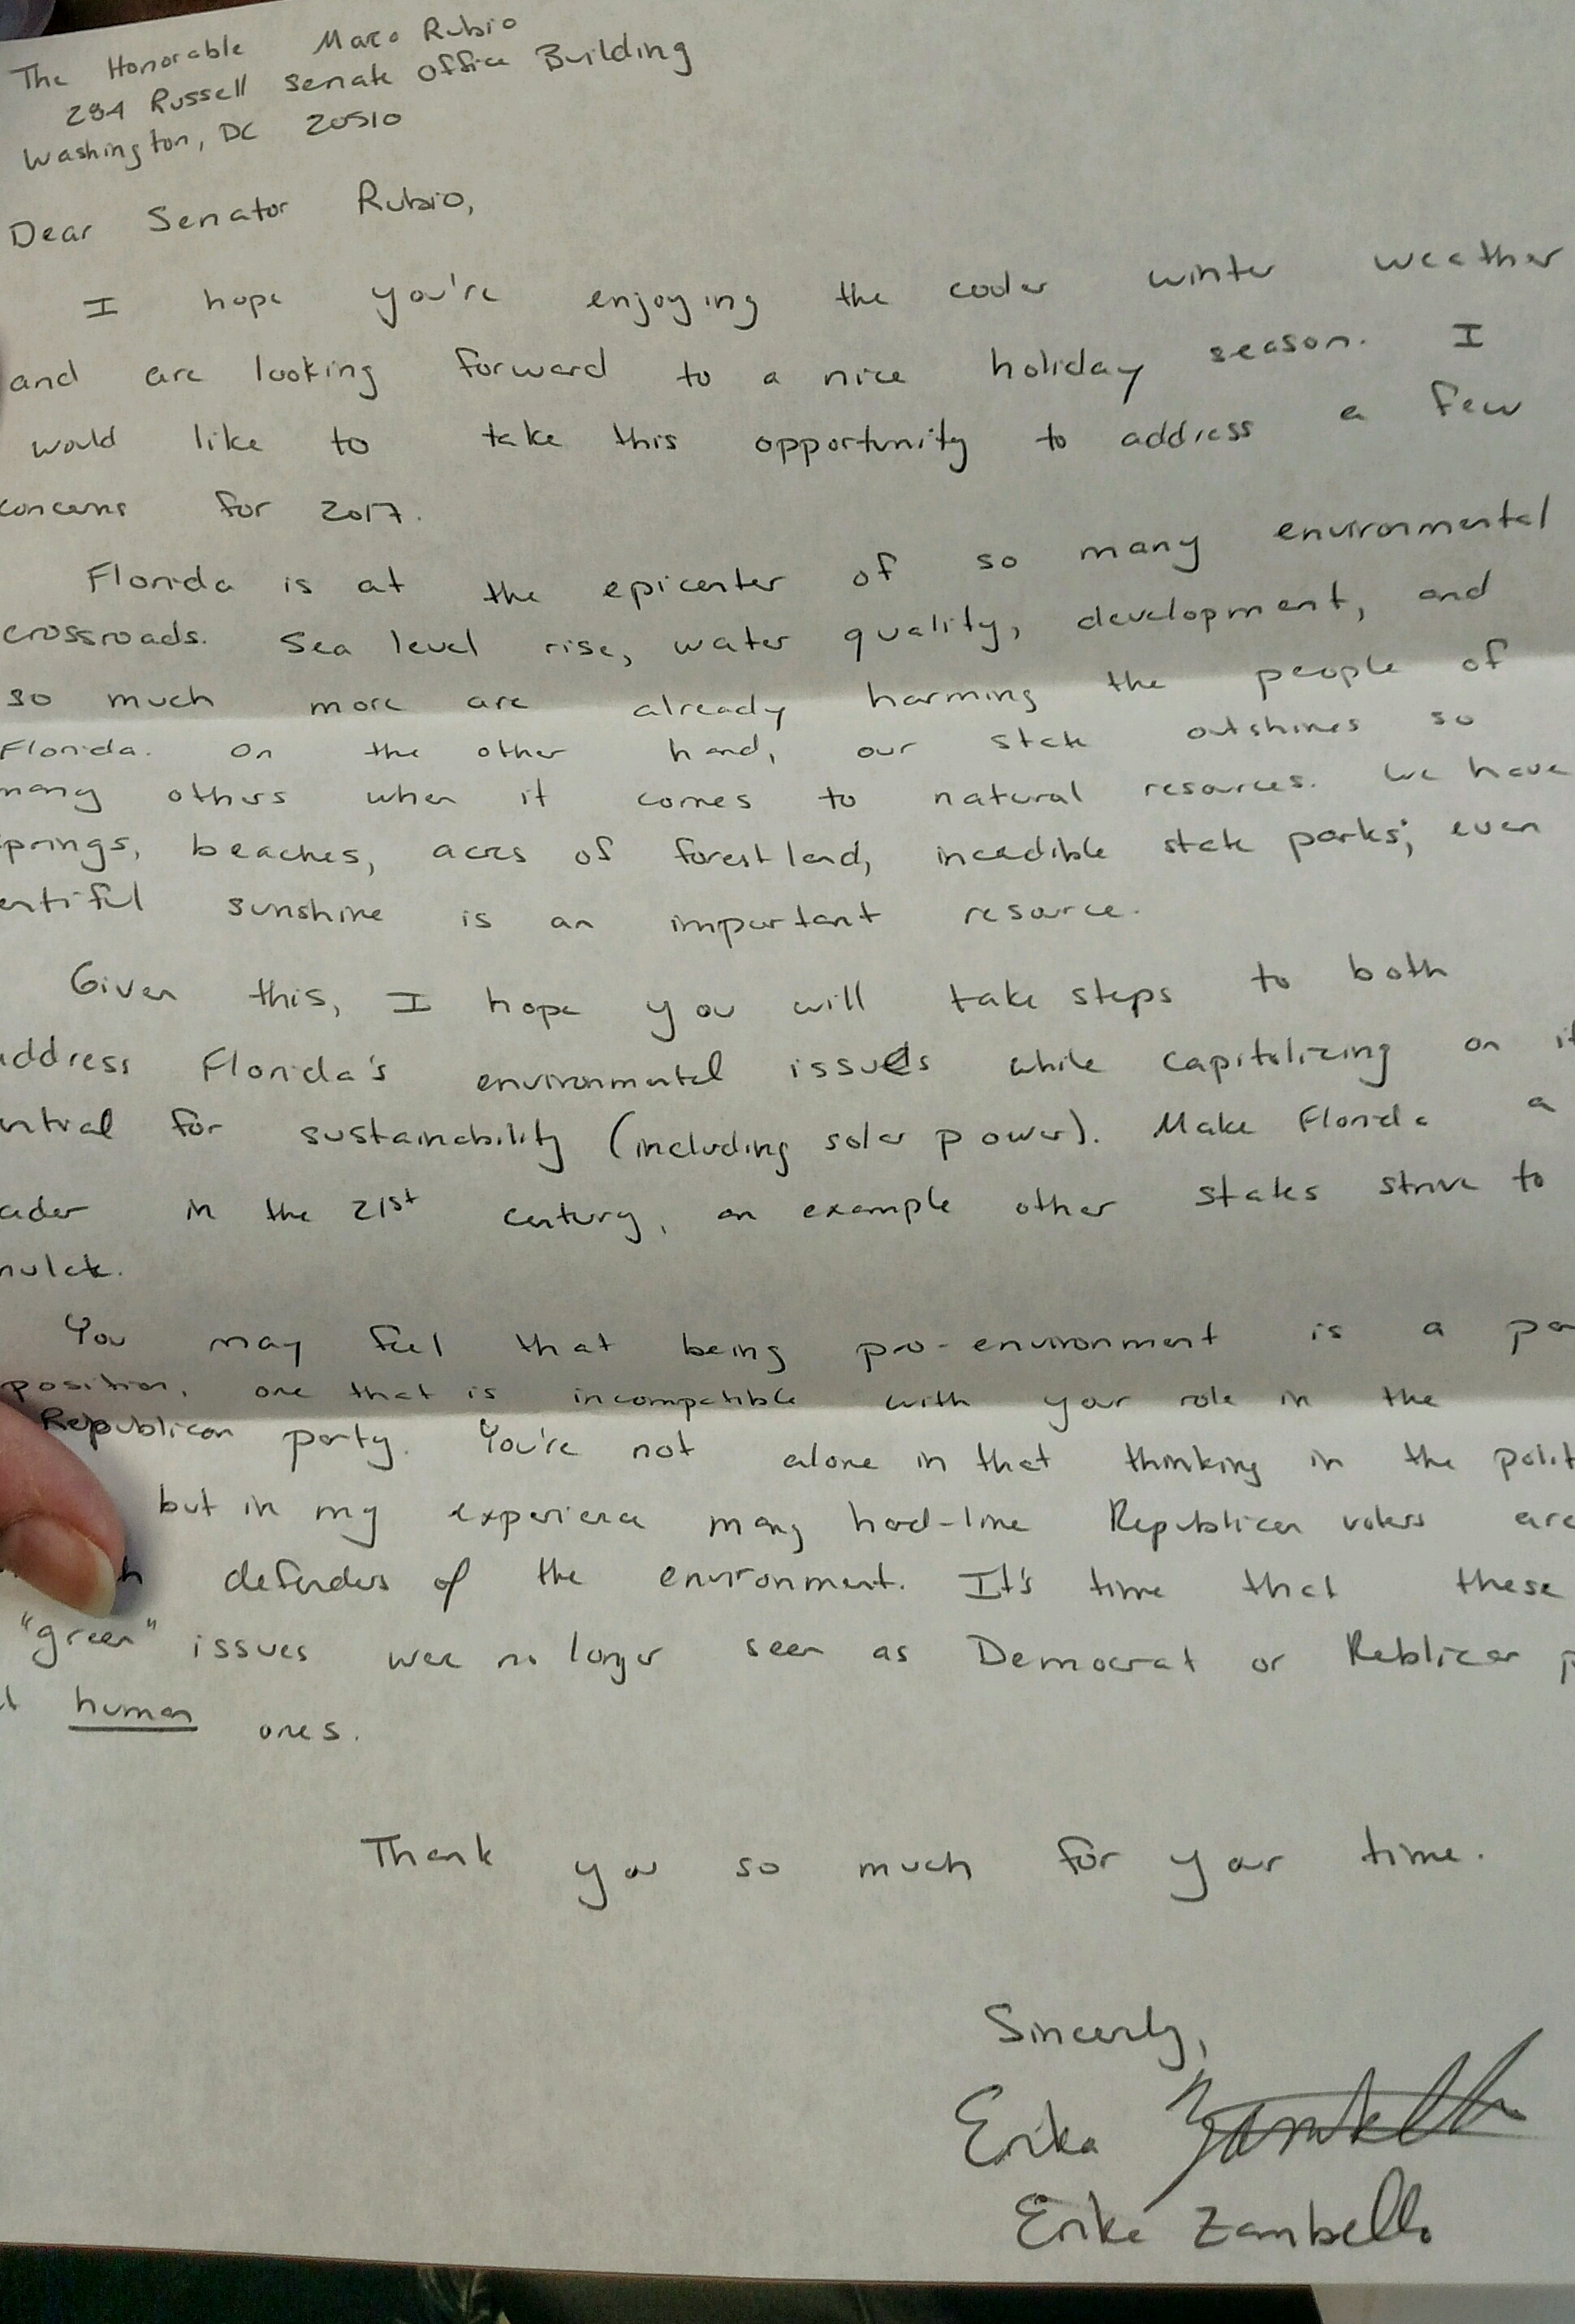 The Honorable Marco Rubio
284 Russell Senate Office Building
Washington, DC 20510
Dear Senator Rubio,
I hope you're enjoying the cooler winter weather
and are looking forward to a nice holiday season. I
would like to take this opportunity to address a few
concerns for 2017.
Florida is at the epicenter of so many environmental
crossroads. Sea level rise, water quality, development, and
so much more are already harming the people of
Florida. On the other hand, our state outshines so
many others when it comes to natural resources. We have
prings, beaches, acres of forest land, incredible state parks; even
entiful sunshine is an important resource.
Given this, I hope you will take steps to both
address Florida's environmental issues while capitalizing on it
ential for sustainability (including solar power). Make Florida a
ader in the 21st century, an example other states strive to
mulate.
You may feel that being pro-environment is a pa
position, one that is incompatible with your role in the
Republican party. You're not alone in that thinking in the polit
but in my experience many hard-line Republican voters are
h defenders of the environment. It's time that these
"green" issues were no longer seen as Democrat or Reblican p
t human ones.
Thank you so much for your time.
Sincerly,
Erika Zambello
Erika Zambello